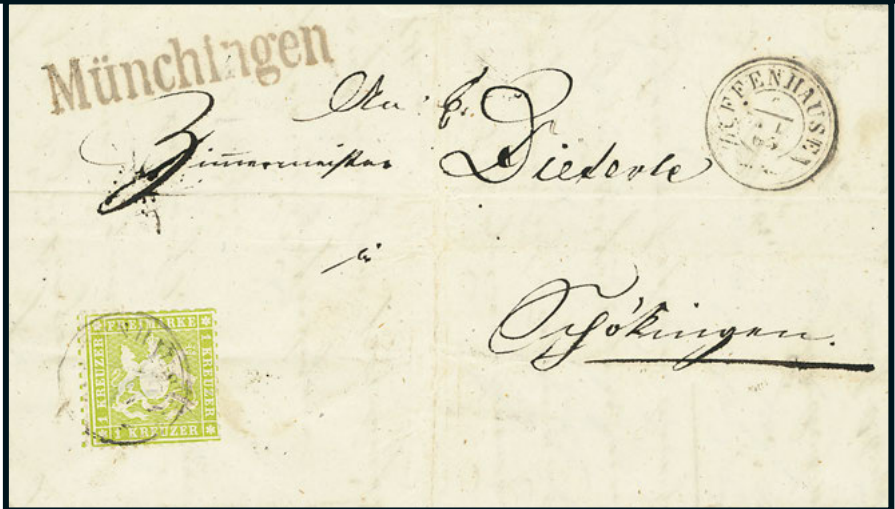 Münchingen
An
ZUFFENHAUSEN
Zimmermeister Dieterle
in
Schökingen.
FREIMARKE
1 KREUZER
1 KREUZER
1 KREUZER